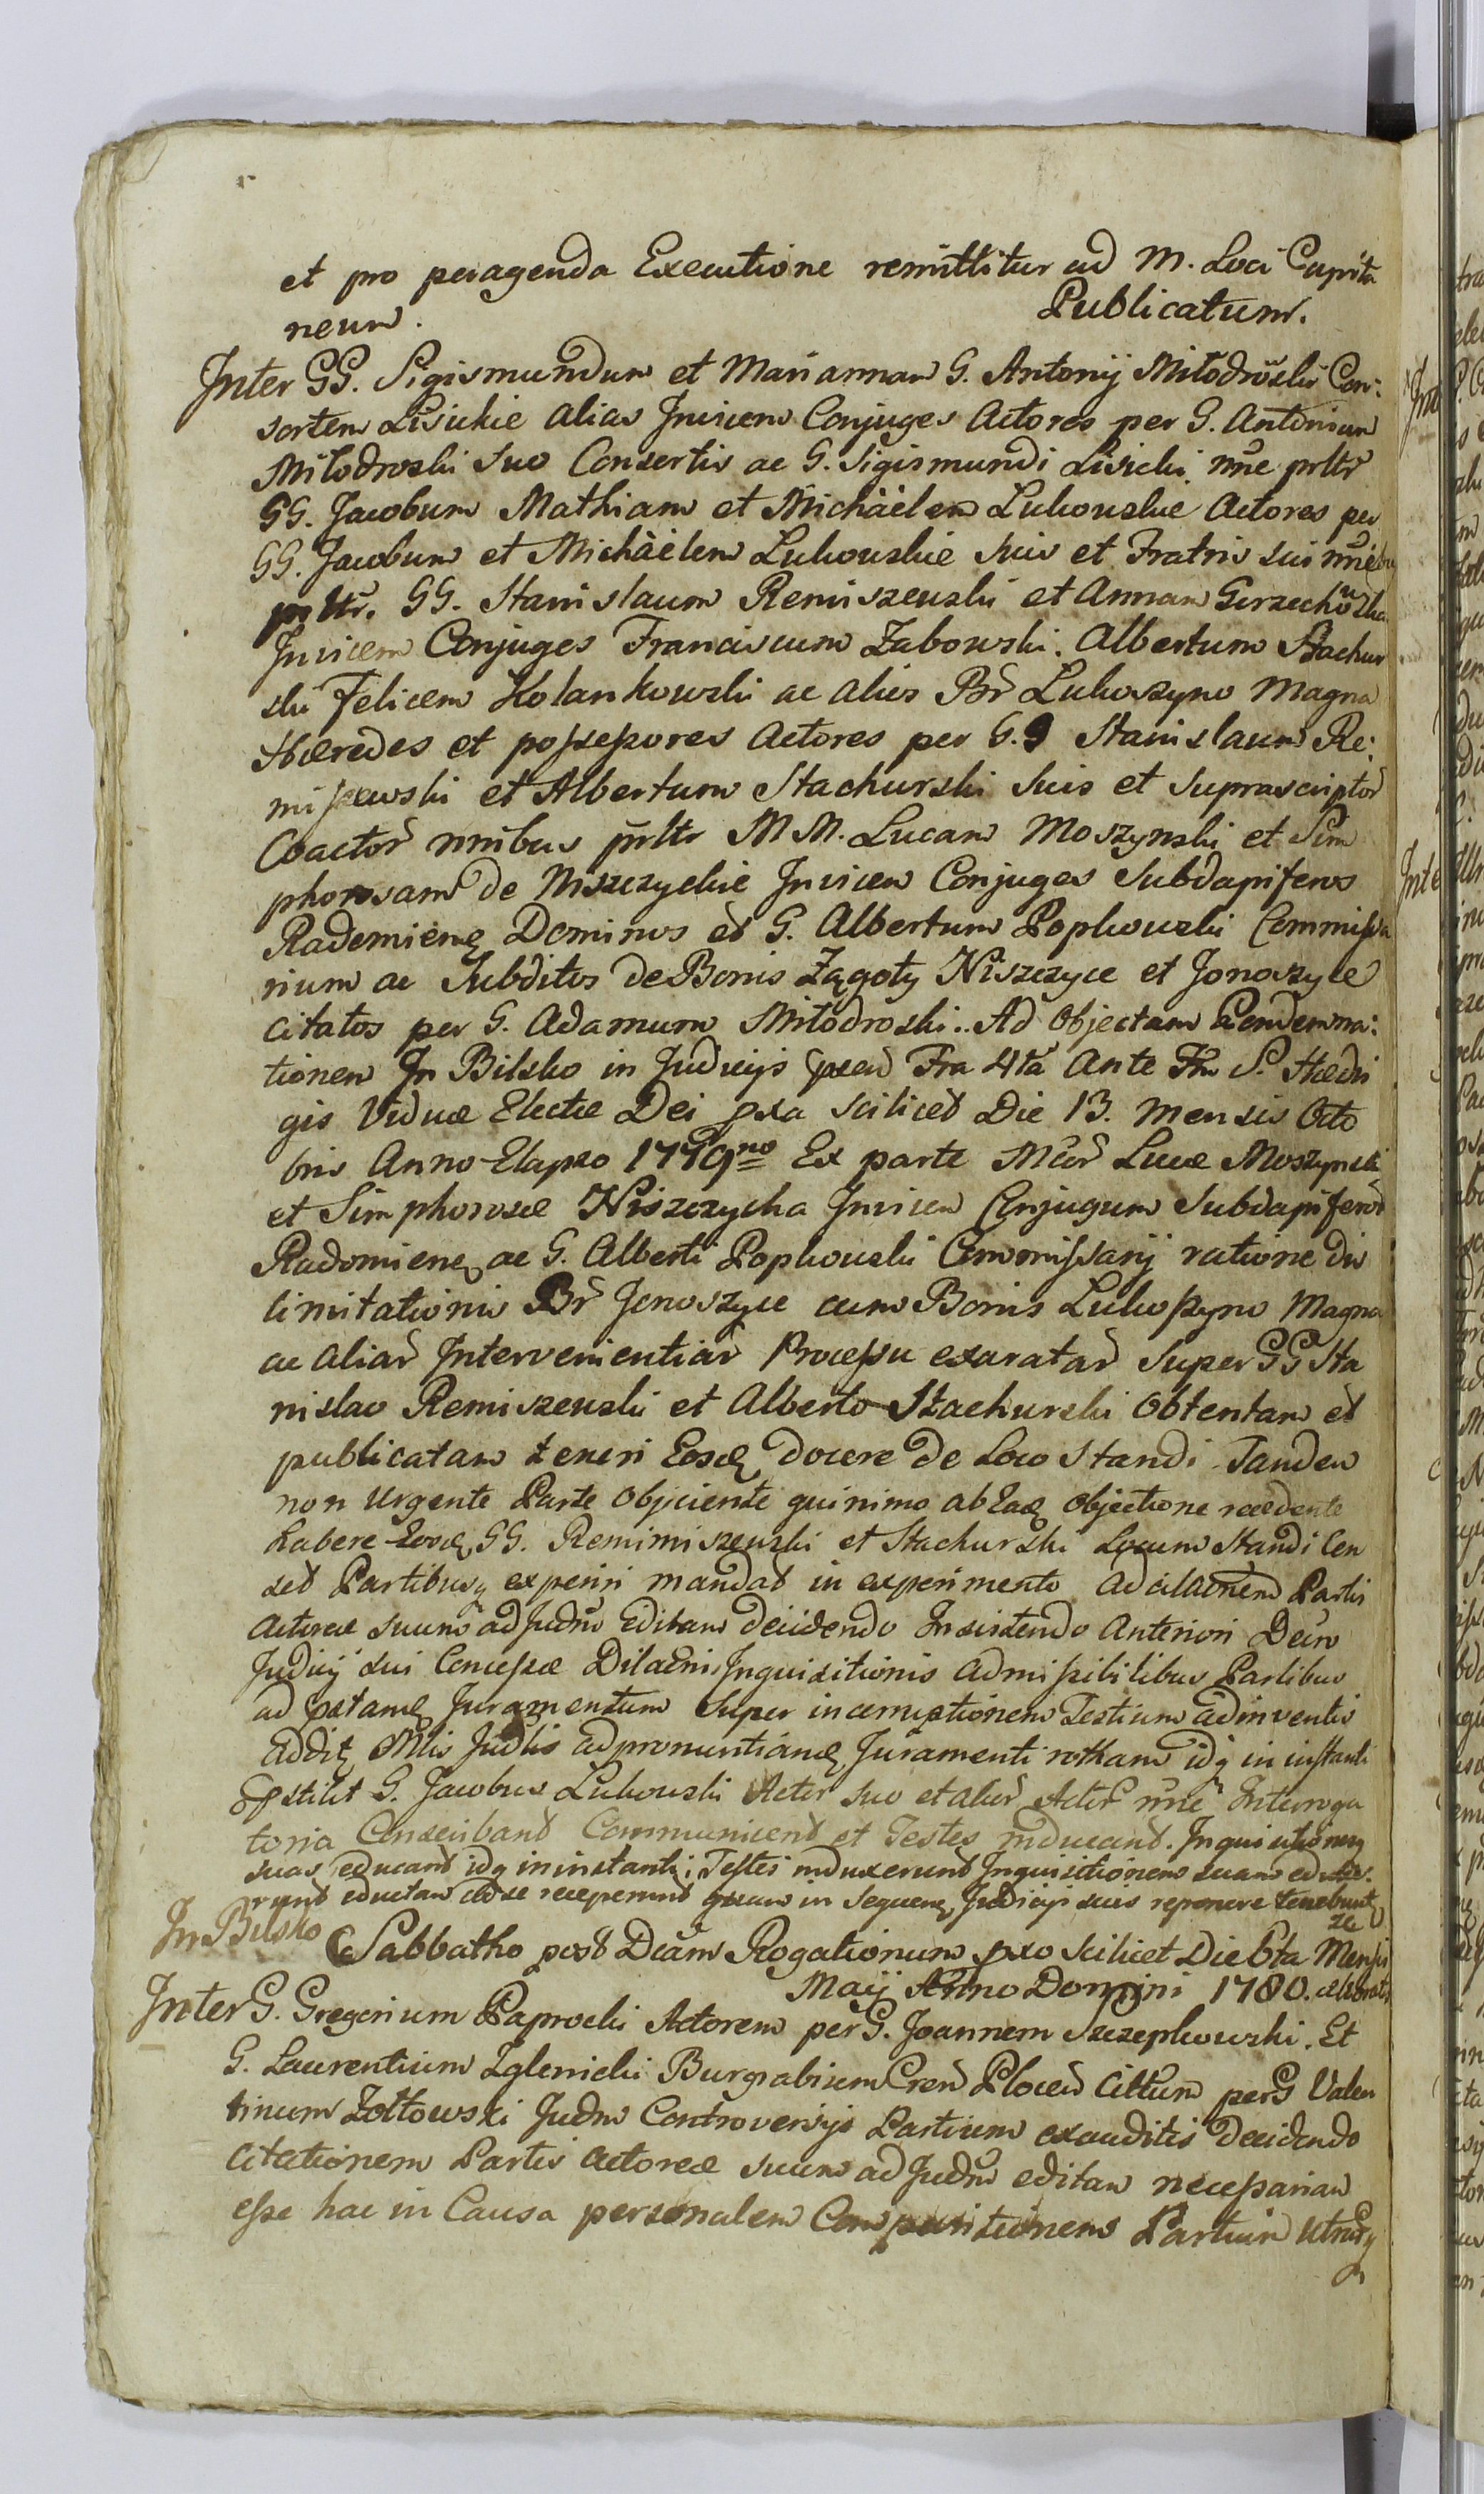 et pro peragenda Executione remittitur ad M. Loci Capita
neum. Publicatum.
Inter GG. Sigismundum et Mariannam G. Antonij Miłodroski Con:
sortem Lisickie alias Invicem Conjuges Actores per G. Antonium
Miłodroski suo Consortis ac G. Sigismundi Lisicki nne prltr
GG. Jacobum Mathiam et Michäelem Lukouskie Actores per
GG. Jacobum et Michäelem Lukouskie suis et Fratris sui nne
prltr. GG. Stanislaum Remiszeuski et Annam Gorzechoska
Invicem Conjuges Franciscum Zabowski. Albertum Stachur
ski Felicem Kolankowski ac alios Br Lukoszyno Magna
Hæredes et possessores Actores per G.G Stanislaum Re:
miszewski et Albertum Stachurski suis et suprascriptor
Coactor nnibus prltr MM. Lucam Moszynski et Sim
phorosam de Niszczyckie Invicem Conjuges Subdapiferos
Rademiene Dominos et G. Albertum Popkouski Commissa
rium ac Subditos de Bonis Zągoty Niszczyce et Jonoszyce
citatos per G. Adamum Miłodroski.. Ad Objectam Condemna:
tionem In Bilsko in Judicijs Fra 4ta Ante Fm S. Hedvi
gis Viduæ Electæ Dei pxa scilicet Die 13. Mensis Octo
bris Anno Elapso 1779no Ex parte Mcor Lucæ Moszynski
et Simphorosæ Niszczycka Invicem Conjugum Subdapiferor
Radomiene ac G. Alberti Popkouski Commissarij ratione dis
limitationis Br Jonoszyce cum Bonis Lukoszyno Magna
ac aliar Intervenientiar Processu exaratar super GG Sta
nislao Remiszeuski et Alberto Stachurski Obtentam et
publicatam teneri Eosd docere de Loco Standi. Tandem
non Urgente Parte Objiciente quinimo ab Ead objectione recedente
habere Eosd GG. Remimiszeuski et Stachurski Locum Standi Cen
set Partibusq experiri mandat in experimento Ad citaonem Partis
Actoreæ suum ad Judm Editam decidendo Insistendo Anteriori Decro
Judicij sui Concessæ Dilaonis Inquisitionis admissibilibus Partibus
ad Juramentum super incorruptionem Testium adinventis
addit Mlis Judlis ad pronuntiand Juramenti rotham idq in instanti
stitit G. Jacobus Lukouski Actor suo et alior Actor nne Interroga
toria Conscribant Communicent et Testes inducant. Inquisitionesq
suas educant idq in instanti; Testes induxerunt Inquisitionem suam eduxe:
runt eductam ad se receperunt quam in Sequen Judicijs suis reponere tenebunt
In Bilsko Sabbatho post Dicam Rogationum pxo scilicet Die 6ta Mensis
Maij Anno Domini 1780.
Inter G. Gregorium Paprocki Actorem per G. Joannem Szczepkowski. Et
G. Laurentium Zglenicki Burgrabium Cren Plocen Cittum per G Valen
tinum Zołtowski Judm Controversijs Partium exauditis Decidendo
Citationem Partis Actoreæ suum ad Judm editam necessariam
esse hac in Causa personalem Comparitionem Partium Utriusq